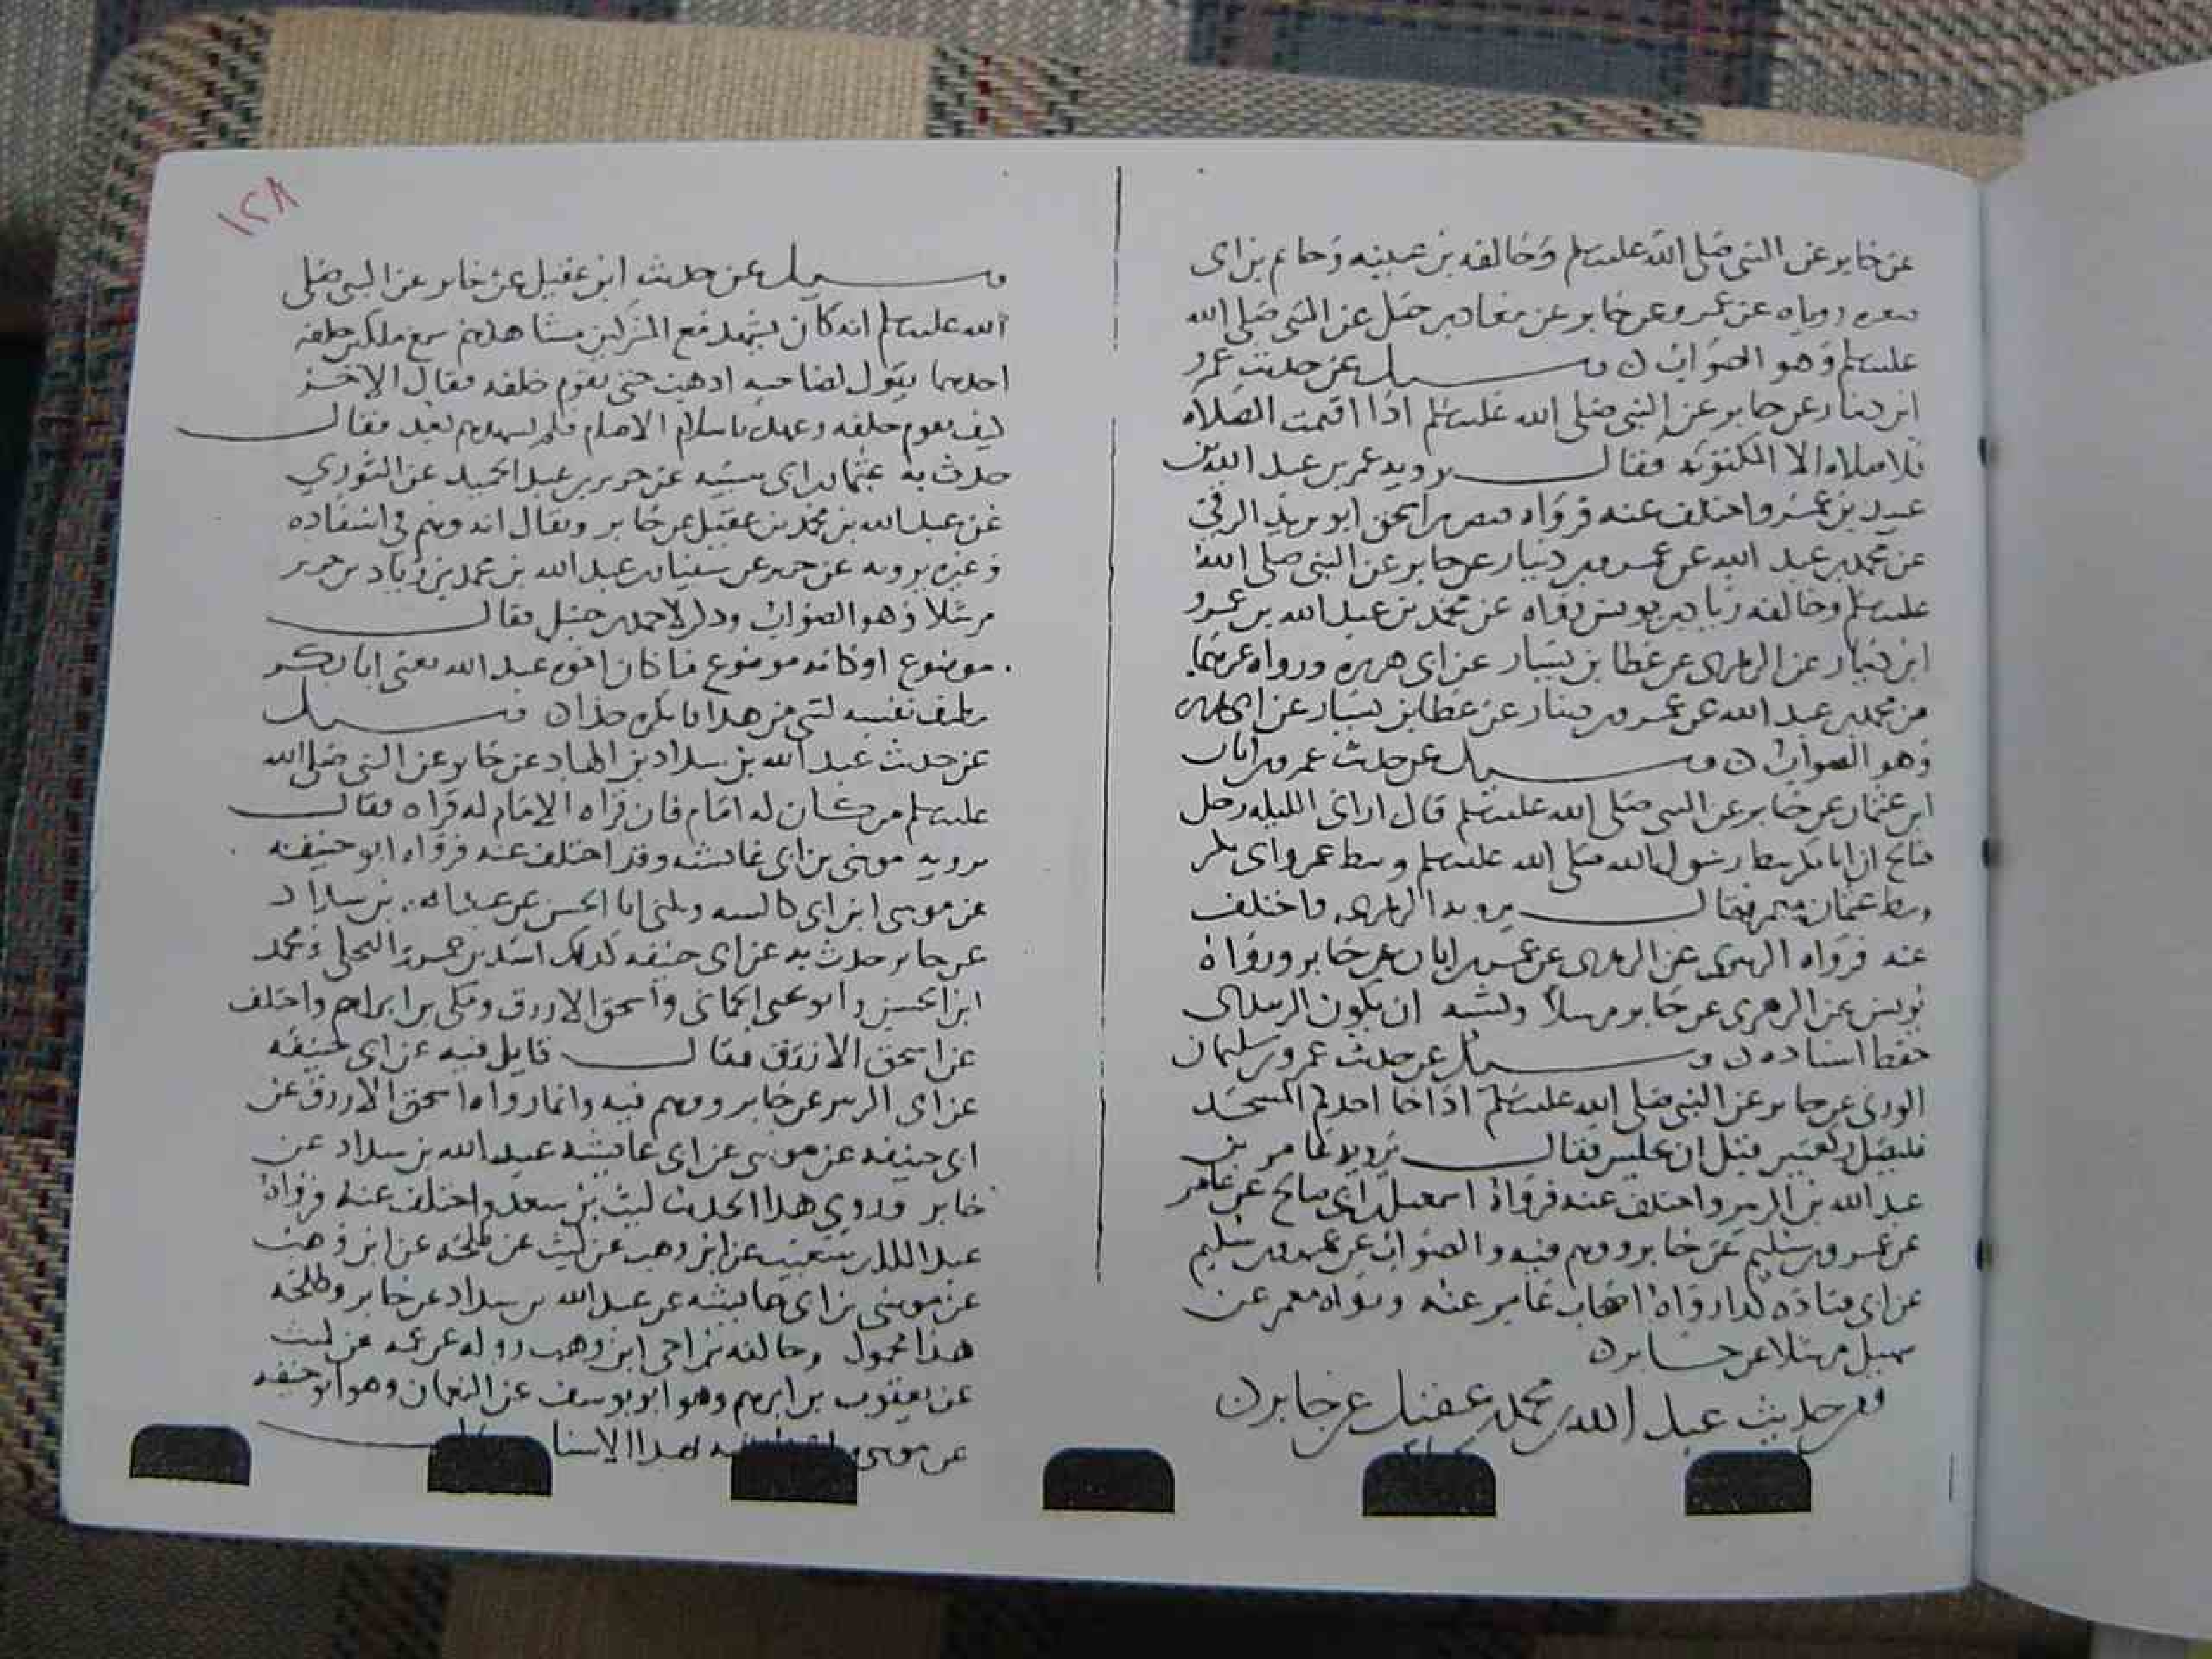 عن جابر عن النبي صلى الله عليه وسلم وخالفه بن عيينه وحاتم بن ابى
صغيره روياه عن عمرو عن جابر عن معاذ بن جبل عن النبي صلى الله
عليه وسلم وهو الصواب ن وسيل عن حديث عمرو
ابن دينار عن جابر عن النبي صلى الله عليه وسلم اذا اقيمت الصلاه
فلا صلاه الا المكتوبه فقال يرويه محمد بن عبد الله بن
عبيد بن عمير واختلف عنه فرواه اسحق ابو يزيد الرقي
عن محمد بن عبد الله عن عمرو بن دينار عن جابر عن النبي صلى الله
عليه وسلم وخالفه زياد بن يونس رواه عن محمد بن عبد الله بن عمرو
ابن دينار عن الزهرى عن عطا بن يسار عن ابى هريره ورواه
عن محمد بن عبد الله عن عمرو بن دينار عن عطا بن يسار عن ابى هريره
وهو الصواب ن وسيل عن حديث عمرو بن ابان
ابن عثمان عن جابر عن النبي صلى الله عليه وسلم قال ارى الليله رجل
صالح ان ابا بكر نيط برسول الله صلى الله عليه وسلم ونيط عمر بابى بكر
ونيط عثمان بعمر فقال يرويه الزهرى واختلف
عنه فرواه الزبيدى عن الزهرى عن عمرو بن ابان عن جابر ورواه
يونس عن الزهرى عن جابر مرسلا ويشبه ان يكون الزبيدى
حفظ اسناده ن وسيل عن حديث عمرو بن سليمان
الزرقى عن جابر عن النبي صلى الله عليه وسلم اذا جا احدكم المسجد
فليصل ركعتين قبل ان يجلس فقال يرويه عامر بن
عبد الله بن الزبير واختلف عنه فرواه اسمعيل بن ابى صالح عن عامر
عن عمرو بن سليم عن جابر ووهم فيه والصواب عن عمرو بن سليم
عن ابى قتاده كذا رواه اصحاب عامر عنه ورواه معمر عن
سهيل مرسلا عن جابر ن
ومن حديث عبد الله بن محمد عقيل عن جابر ن
١٢٨
وسيل عن حديث ابن عقيل عن جابر عن النبي صلى
الله عليه وسلم انه كان يشهد مع المشركين مشاهدهم سمع ملكين خلفه
احدهما يقول لصاحبه اذهب حتى يقوم خلفه فقال الاخر
كيف يقوم خلفه وعهده باستلام الاصنام فلم يشهدهم بعد فقال
حدث به عثمان بن ابى شيبه عن جرير بن عبد الحميد عن الثوري
عن عبد الله بن محمد بن عقيل عن جابر ويقال انه وهم في اسناده
وغيره يرويه عن جرير عن سفيان عن عبد الله بن محمد بن زياد بن جرير
مرسلا وهو الصواب وذكر لاحمد بن حنبل فقال
موضوع او كانه موضوع ما كان اخوه عبد الله يعنى ابا بكر
يطنف نفسه لشى من هذا ن وسيل
عن حديث عبد الله بن شداد بن الهاد عن جابر عن النبي صلى الله
عليه وسلم من كان له امام فان قراه الامام له قراه فقال
يرويه موسى بن ابى عايشه وقد اختلف عنه فرواه ابو حنيفه
عن موسى ابن ابى عايشه ويكنى ابا الحسن عن عبد الله بن شداد
عن جابر حدث به عن ابى حنيفه كذلك اسد بن عمرو البجلى ومحمد
ابن الحسن وابو يحيى الحمانى واسحق الازرق ومكى بن ابراهيم واختلف
عن اسحق الازرق فقال قايل فيه عن ابى حنيفه
عن ابى الزبير عن جابر ووهم فيه وانما رواه اسحق الازرق عن
ابى حنيفه عن موسى عن ابى عايشه عبد الله بن شداد عن
جابر وروى هذا الحديث ليث بن سعد واختلف عنه فرواه
عبد الملك بن شعيب عن ابن وهب عن ليث عن طلحه عن ابن وهب
عن موسى بن ابى عايشه عن عبد الله بن شداد عن جابر وطلحه
هذا مجهول وخالفه بن اخى ابن وهب رواه عن عمه عن ليث
عن يعقوب بن ابرهيم وهو ابو يوسف عن النعمان وهو ابو حنيفه
عن موسى بهذا الاسناد